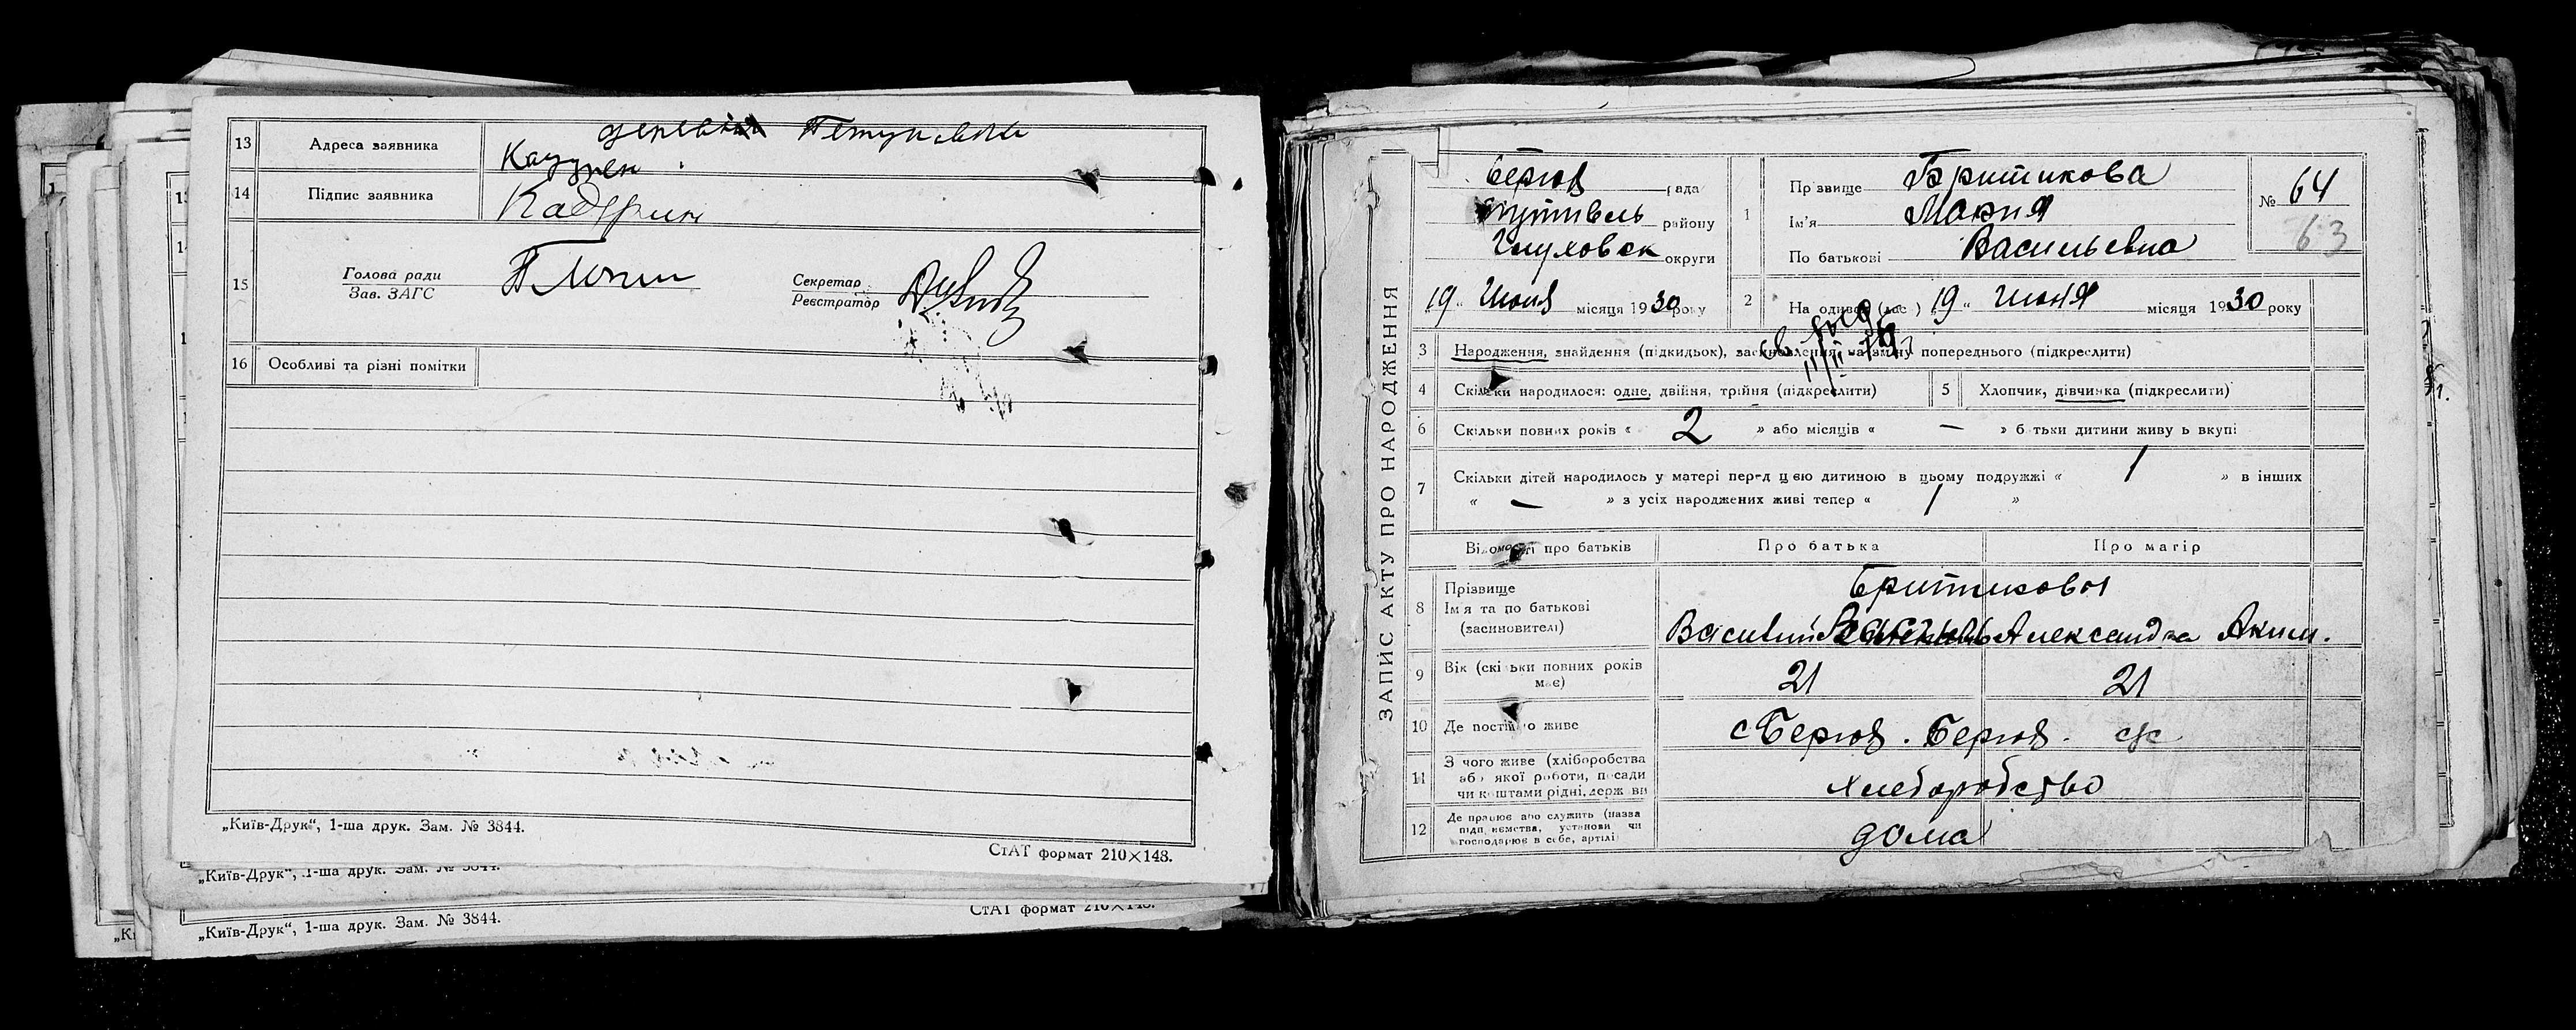 13 Адреса заявника деревня
14 Підпис заявника
15 Голова ради
Зав. ЗАГС
Секретар
Реєстратор
16 Особливі та різні помітки
„Київ-Друк“, 1-ша друк. Зам. № 3844.
СтАТ формат 210×148.
„Київ-Друк“, 1-ша друк. Зам. № 3844.
„Київ-Друк“, 1-ша друк. Зам. № 3844.
СтАТ формат 210×148.
ЗАПИС АКТУ ПРО НАРОДЖЕННЯ
Берюх рада
Путивль району
Глуховск округи
„19“ Июня місяця 1930 року
1 Прізвище Бритикова
Ім'я Мария
По батькові Васильевна
№ 64
63
2 На одивод (дає) „19“ июня місяця 1930 року
3 Народження, знайдення (підкидьок), засиновлення, на зміну попереднього (підкреслити)
4 Скільки народилося: одне, двійня, трійня (підкреслити)
5 Хлопчик, дівчинка (підкреслити)
6 Скільки повних років « 2 » або місяців « — » батьки дитини живуть вкупі
7 Скільки дітей народилось у матері перед цією дитиною в цьому подружжі « 1 » в інших
« — » з усіх народжених живі тепер « 1 »
Відомості про батьків Про батька Про матір
8 Прізвище
Ім'я та по батькові
(засиновителі)
Бритиковы
Василий Александра Аким.
9 Вік (скільки повних років
має) 21 21
10 Де постійно живе с Берюх. Берюх. с/с
11 З чого живе (хліборобства
або якої роботи, посади
чи коштами рідні, держави
хлеборобство
12 Де працює або служить (назва
підприємства, установи чи
господарює в себе, артілі
дома